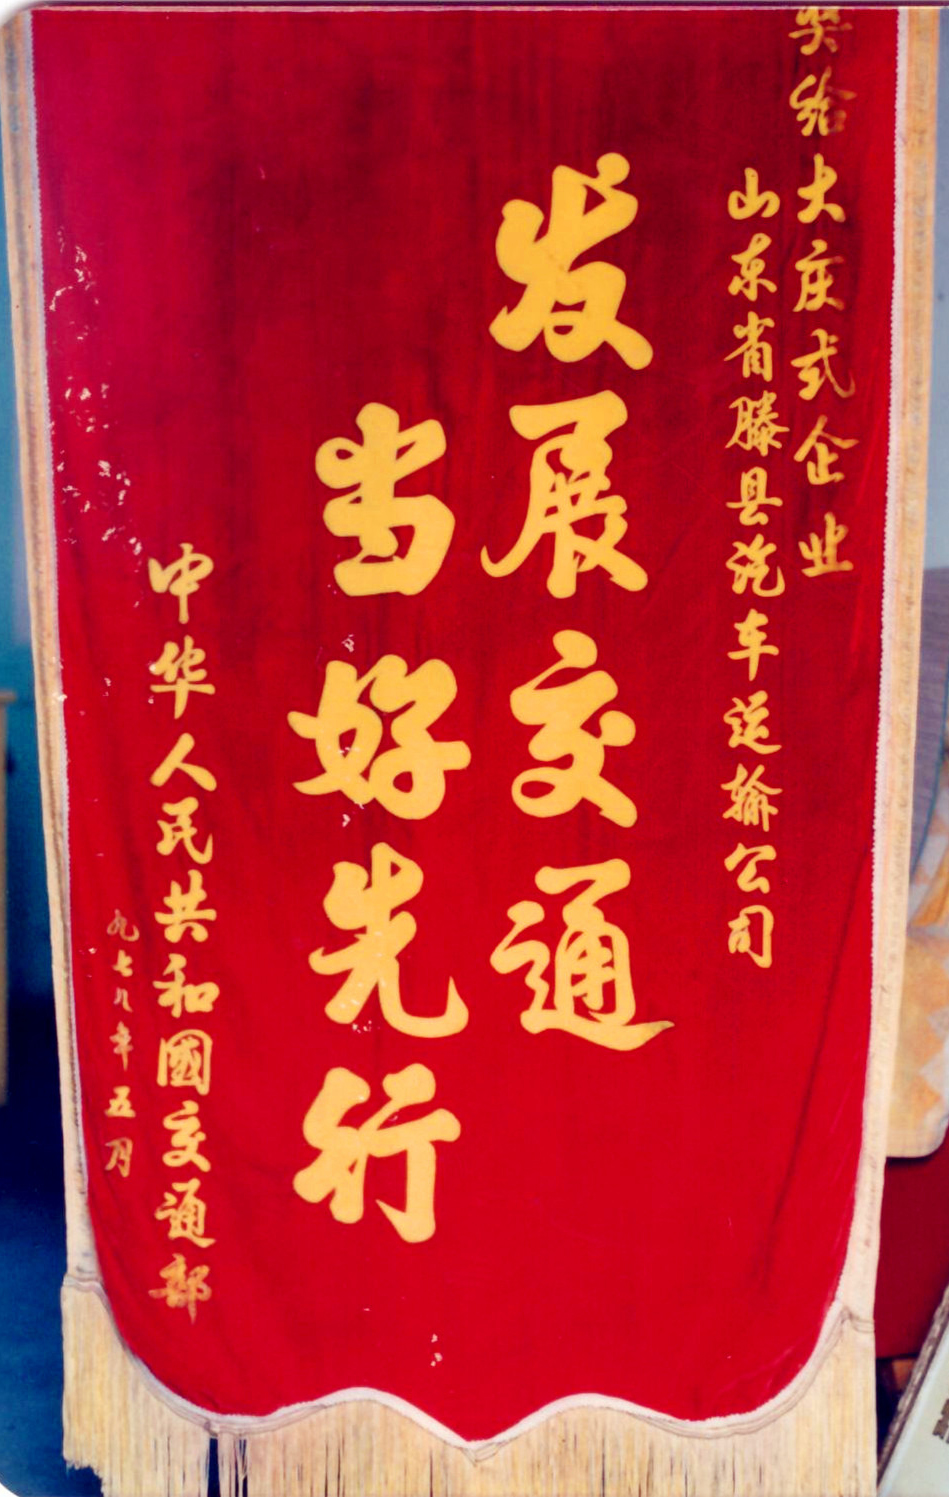 奖给大庆式企业
山东省滕县汽车运输公司
发展交通
当好先行
中华人民共和國交通部
九七八年五月